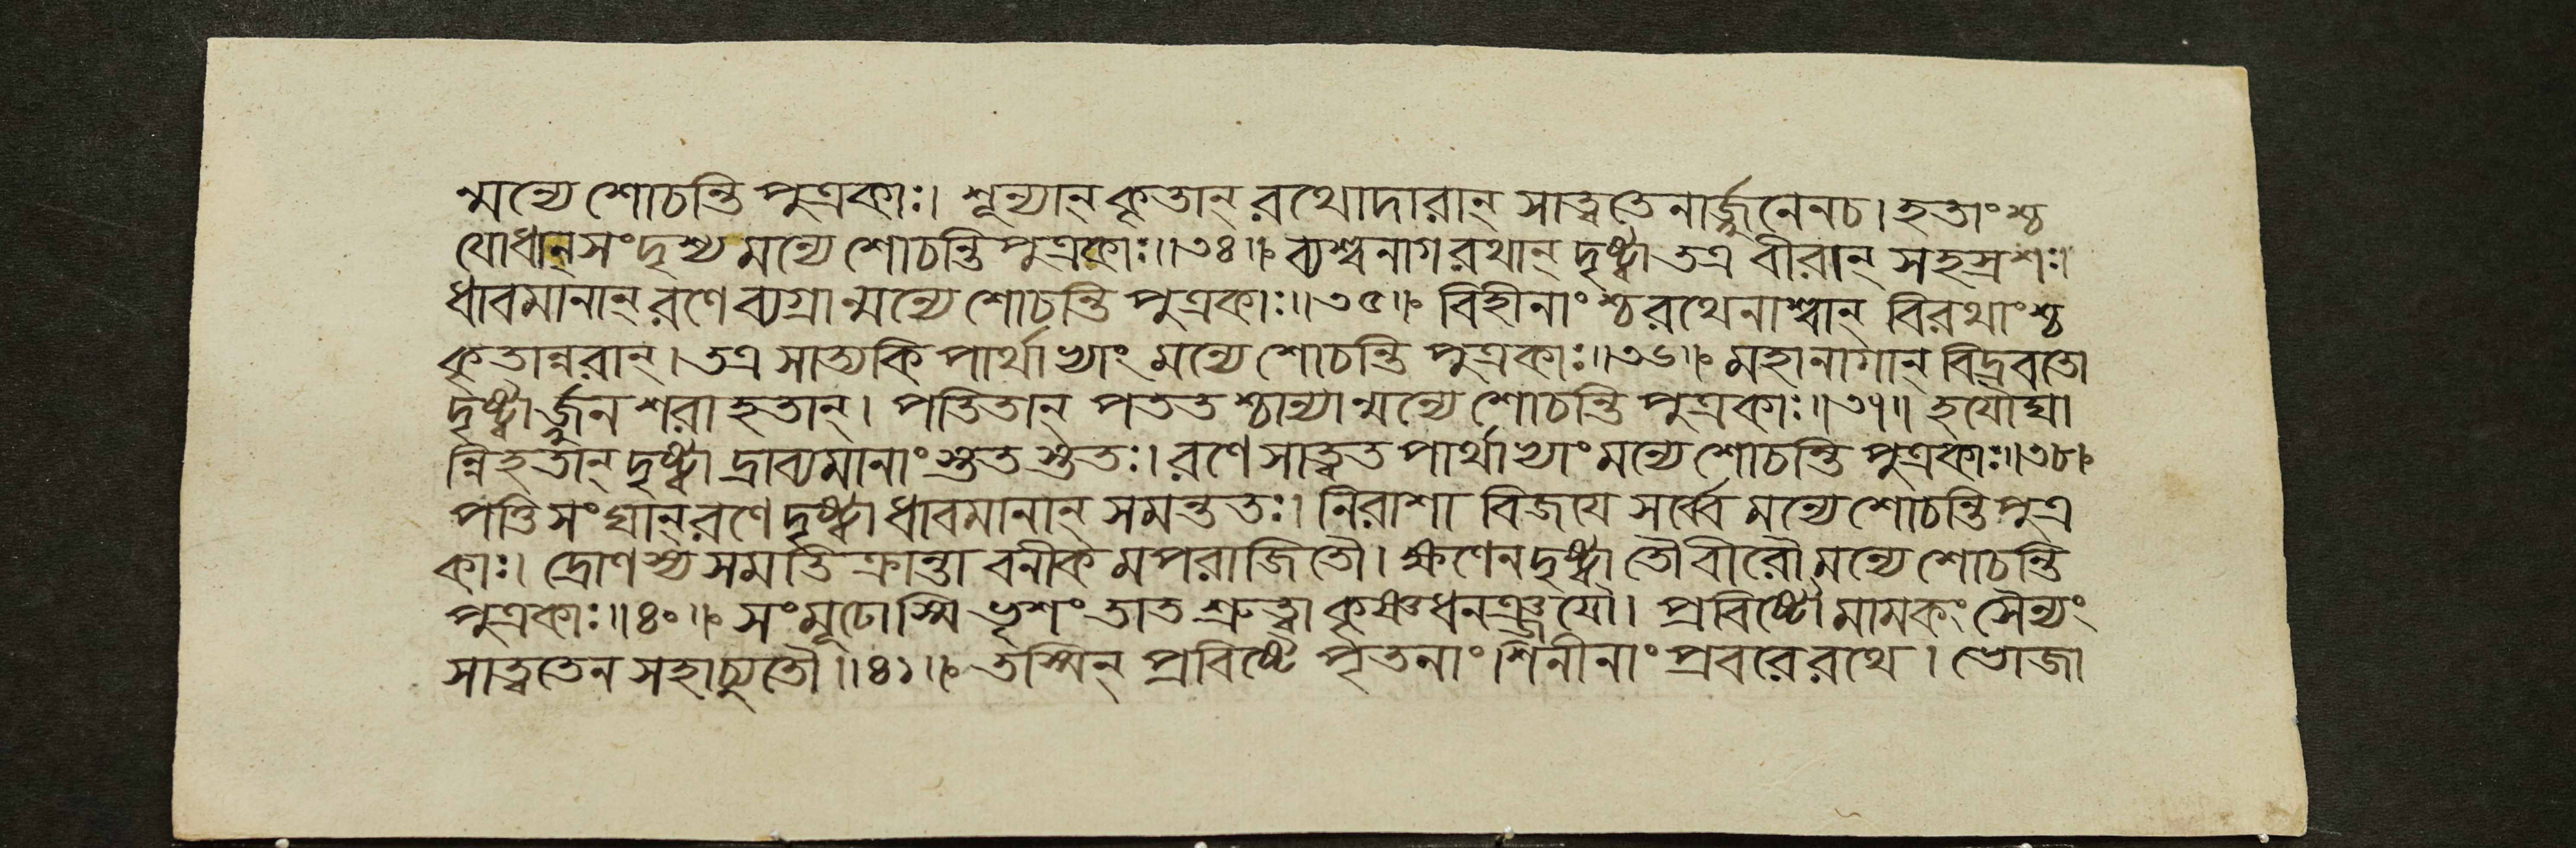 ন্মন্যে শোচন্তি পুত্রকাঃ। শূন্যান্ কৃতান্ রথোদারান্ সাত্বতেনার্জ্জুনেনচ। হতাংশ্চ
যোধান্ সংদৃশ্য মন্যে শোচন্তি পুত্রকাঃ॥৩৪॥ ব্যশ্বনাগরথান্ দৃষ্ট্বা তত্র বীরান্ সহস্রশঃ।
ধাবমানান্ রণে ব্যগ্রান্মন্যে শোচন্তি পুত্রকাঃ॥৩৫॥ বিহীনাংশ্চ রথেনাশ্বান্ বিরথাংশ্চ
কৃতান্নরান্। তত্র সাত্যকি পার্থাভ্যাং মন্যে শোচন্তি পুত্রকাঃ॥৩৬॥ মহানাগান্ বিদ্রবতো
দৃষ্ট্বার্জ্জুন শরাহতান্। পতিতান্ পততশ্চান্যান্মন্যে শোচন্তি পুত্রকাঃ॥৩৭॥ হয়ৌঘা
ন্নিহতান্ দৃষ্ট্বা দ্রাব্যমানাংস্ততস্ততঃ। রণে সাত্বত পার্থাভ্যাং মন্যে শোচন্তি পুত্রকাঃ॥৩৮॥
পত্তিসংঘান্ রণে দৃষ্ট্বা ধাবমানান্ সমন্ততঃ। নিরাশা বিজয়ে সর্ব্বে মন্যে শোচন্তি পুত্র
কাঃ। দ্রোণস্য সমতিক্রান্তাবনীকমপরাজিতৌ। ক্ষণেন দৃষ্ট্বা তৌ বীরৌ মন্যে শোচন্তি
পুত্রকাঃ॥৪০॥ সংমূঢোস্মি ভৃশং তাত শ্রুত্বা কৃষ্ণধনঞ্জয়ৌ। প্রবিষ্টৌ মামকং সৈন্যং
সাত্বতেন সহাচ্যুতৌ॥৪১॥ তস্মিন্ প্রবিষ্টে পৃতনাং শিনীনাং প্রবরে রথে। ভোজা